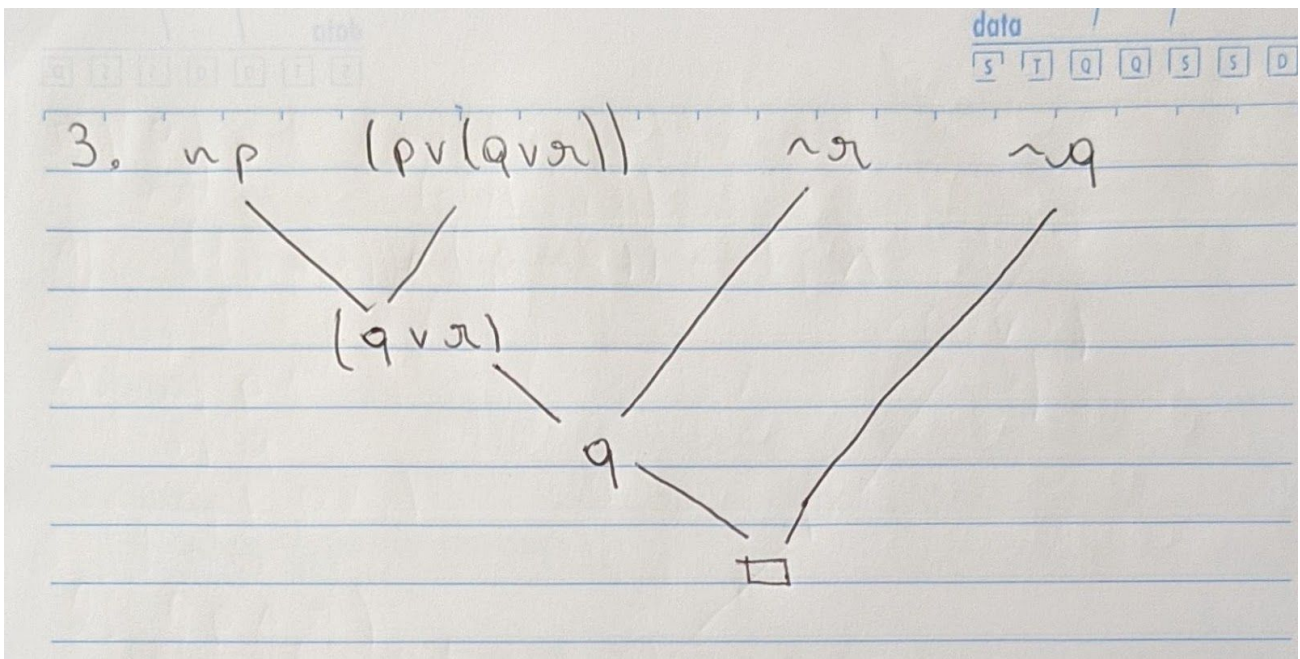 data / /
S T Q Q S S D
3. ~p (p∨(q∨r)) ~r ~q
(q∨r)
q
□